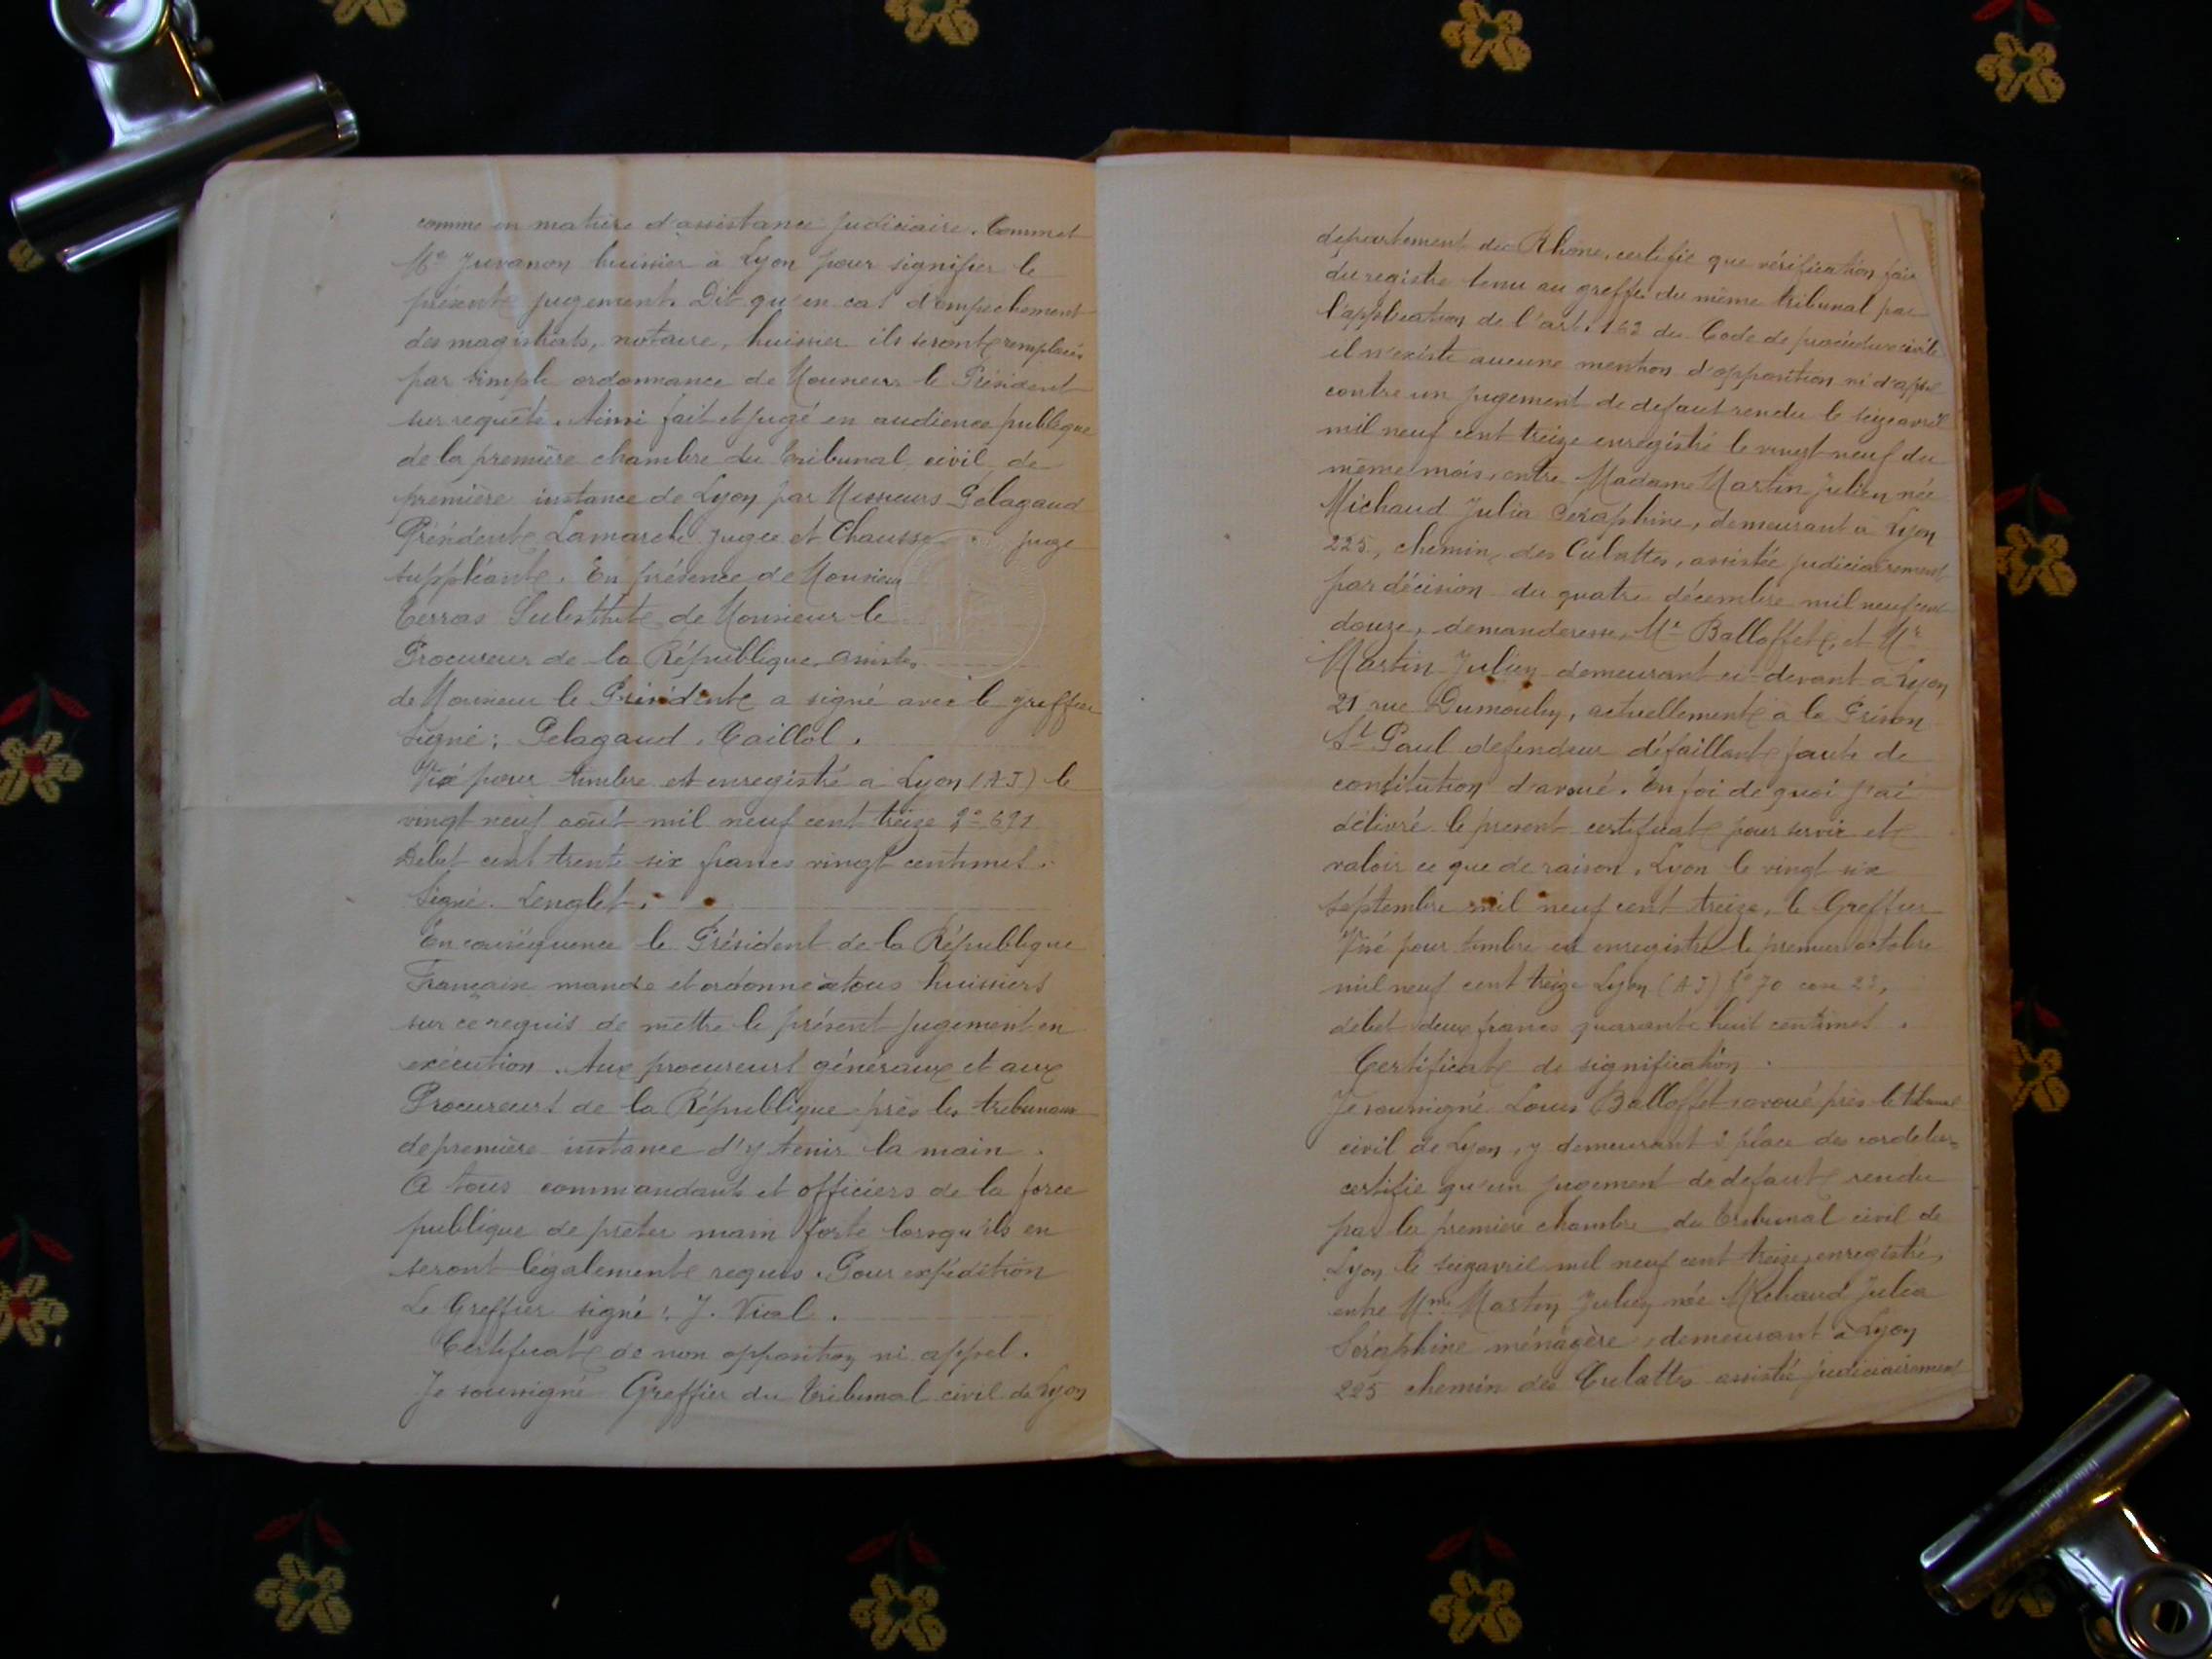 comme en matière d'assistance judiciaire. Commet
Me Juvanon huissier à Lyon pour signifier le
présent jugement. Dit qu'en cas d'empechement
des magistrats, notaire, huissier ils seront remplacés
par simple ordonnance de Monsieur le Président
sur requête. Ainsi fait et jugé en audience publique
de la première chambre du tribunal civil de
première instance de Lyon par Messieurs Pelagaud
Président Lamarche Juge et Chausse juge
suppléant. En présence de Monsieur
Terras Substitut de Monsieur le
Procureur de la République
de Monsieur le Président a signé avec le greffier
Signé: Pelagaud. Caillol.
Visé pour timbre et enregistré à Lyon (AJ) le
vingt neuf août mil neuf cent treize
Debet cent trente six francs vingt centimes.
Signé. Lenglet.
En conséquence le Président de la République
Française mande et ordonne à tous huissiers
sur ce requis de mettre le présent jugement en
exécution. Aux procureurs généraux et aux
Procureurs de la République près les tribunaux
de première instance d'y tenir la main.
A tous commandants et officiers de la force
publique de prêter main forte lorsqu'ils en
seront légalement requis. Pour expédition
Le Greffier signé: J. Vial.
Certificat de non opposition ni appel.
Je soussigné Greffier du tribunal civil de Lyon
departement du Rhône, certifie que vérification faite
du registre tenu au greffe du même tribunal par
l'application de l'art. 163 du Code de procédure civile
il n'existe aucune mention d'opposition ni d'appel
contre un jugement de defaut rendu le seize avril
mil neuf cent treize enregistré le vingt neuf du
même mois, entre Madame Martin Julien née
Michaud Julia Séraphine, demeurant a Lyon
225, chemin des Culattes, assistée judiciairement
par décision du quatre décembre mil neuf cent
douze, demanderesse, Me Balloffet, et Mr
Martin Julien demeurant ci-devant a Lyon
21 rue Dumoulin, actuellement à la Prison
St Paul defendeur défaillant faute de
constitution d'avoué. En foi de quoi j'ai
délivré le present certificat pour servir et
valoir ce que de raison. Lyon le vingt six
septembre mil neuf cent treize, le Greffier
Visé pour timbre et enregistré le premier octobre
mil neuf cent treize Lyon (AJ) fo 70 case 23,
debet deux francs quarante huit centimes.
Certificat de signification.
Je soussigné Louis Balloffet avoué près le tribunal
civil de Lyon, y demeurant place des
certifie qu'un jugement de defaut rendu
par la première chambre du tribunal civil de
Lyon le seize avril mil neuf cent treize, enregistré,
entre Mme Martin Julien née Michaud Julia
Séraphine ménagère, demeurant à Lyon
225 chemin des Culattes assistée judiciairement